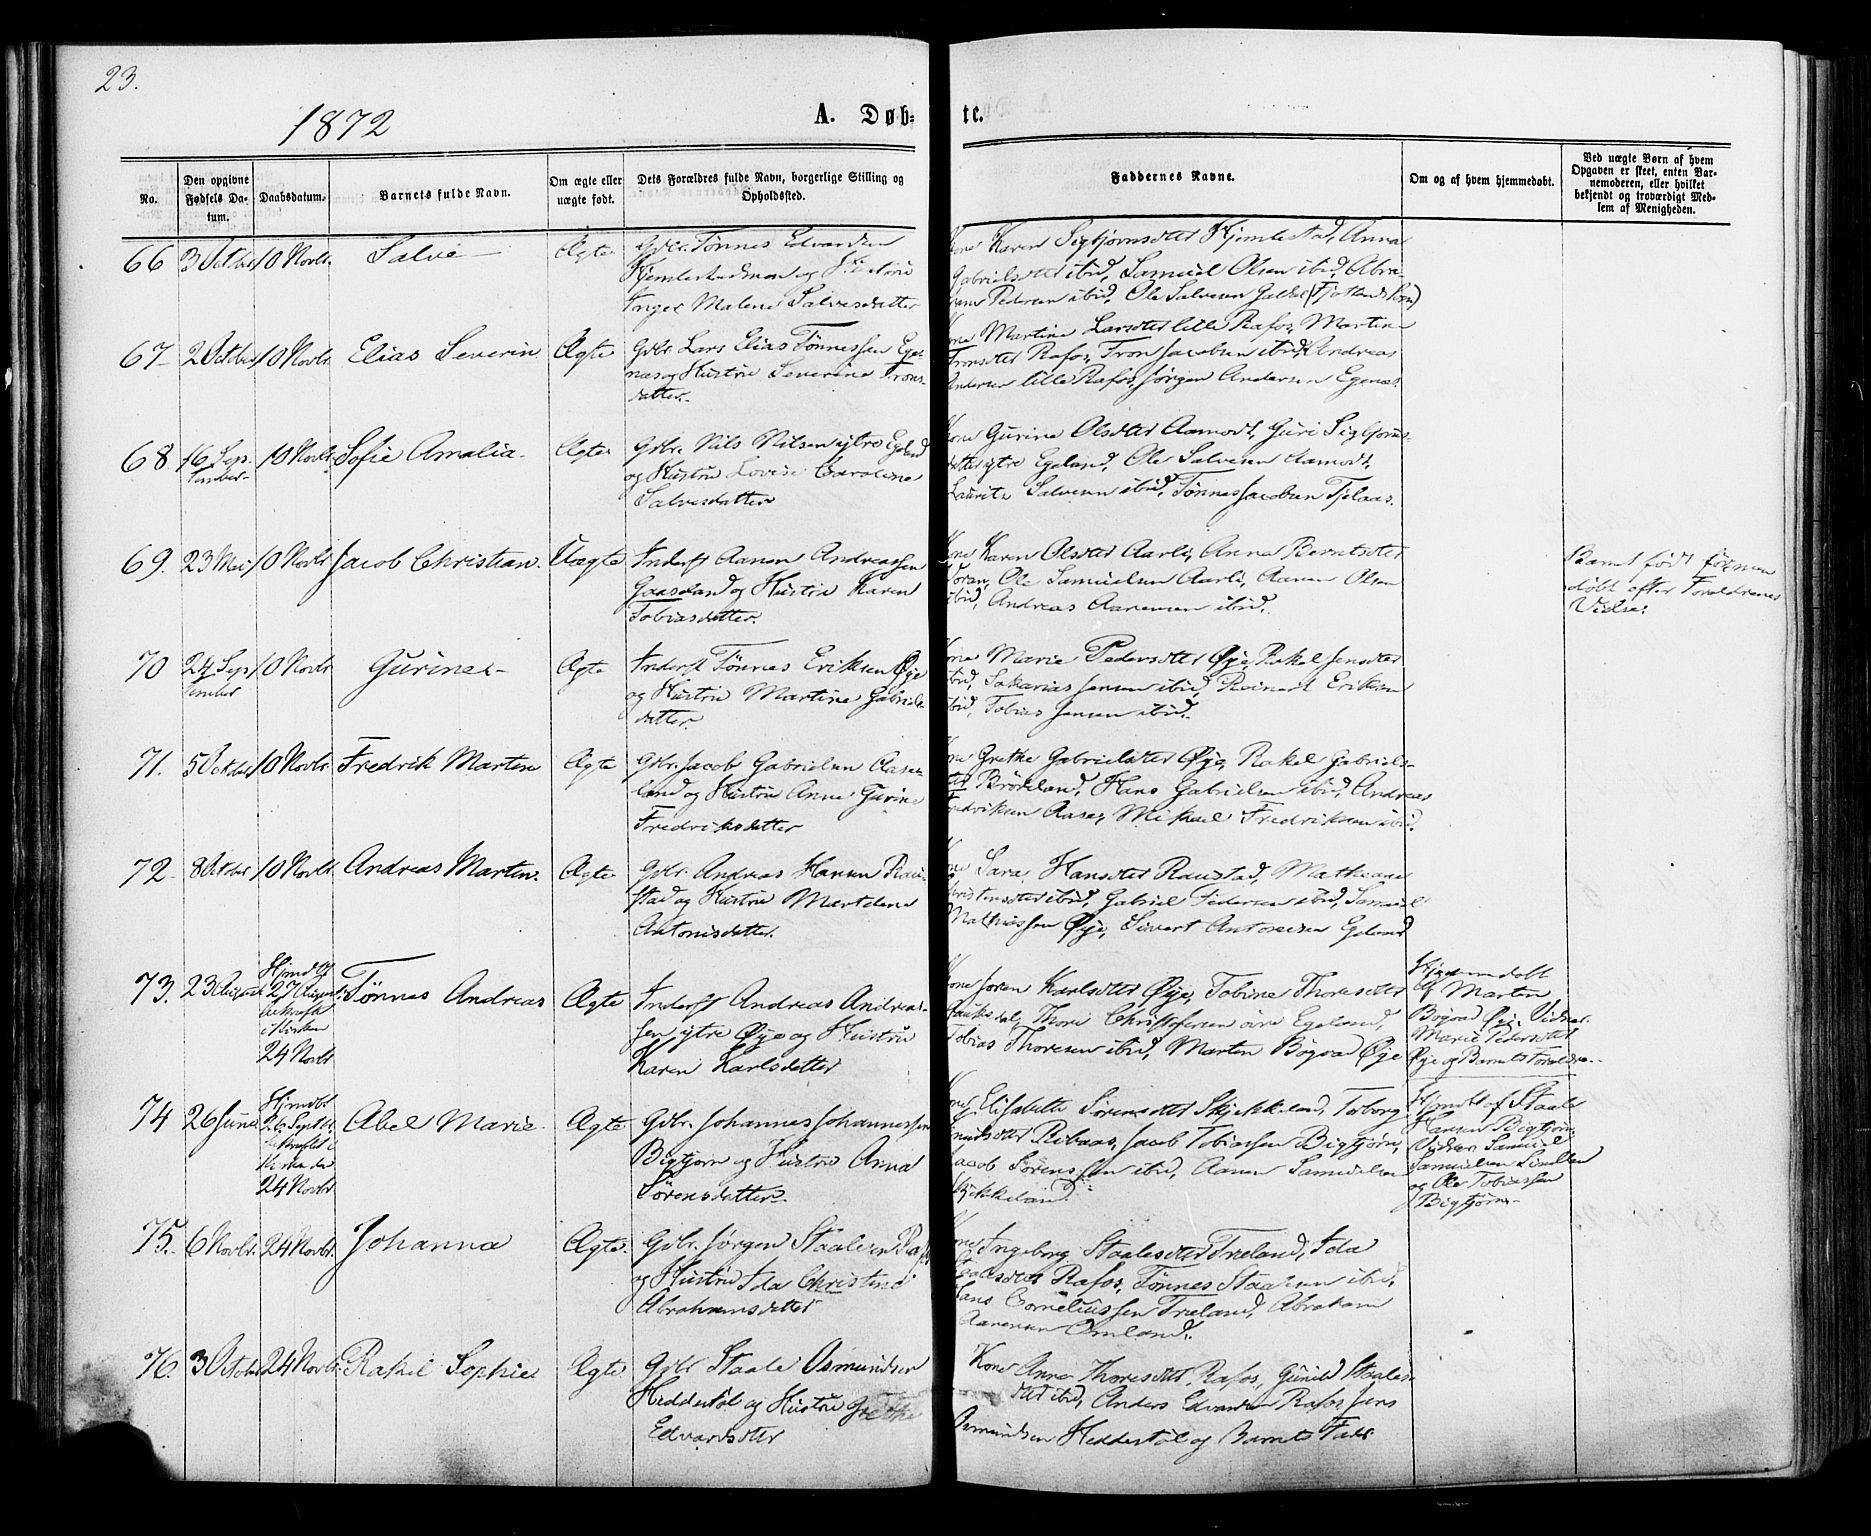 23.
1872
A. Døb-
te.
No.
Den opgivne
Fødsels Da-
tum.
Daabsdatum.
Barnets fulde Navn.
Om ægte eller
uægte født.
Dets Forældres fulde Navn, borgerlige Stilling og
Opholdssted.
Faddernes Navne.
Om og af hvem hjemmedøbt.
Ved uægte Børn af hvem
Opgaven er skeet, enten Bar-
nemoderen, eller hvilket
bekjendt og troværdigt Med-
lem af Menigheden.
66 3 Octbr 10 Novbr. Salve Ægte
Gdbr. Tønnes Edvardsen
og Hustru
Inger Malene Salvesdatter
Kone Karen Sigbjørnsdtr Hjemlestad, Anna
Gabrielsdtr ibid, Samuel Olsen ibid, Abra-
ham Pedersen ibid, Ole Salvesen
67 2 Octbr 10 Novbr. Elias Severin Ægte
Gdbr. Lars Elias Tønnessen Ege-
næs og Hustru Severine Trons-
datter.
Kone Martine Larsdtr lille Rafos, Martine
Tronsdtr Rafos, Tron Jacobsen ibid, Andreas
Andersen lille Rafos, Jørgen Andersen Egenæs.
68 16 Sep-
tember 10 Novbr. Sofie Amalia Ægte
Gdbr. Nils Nilsen ytre Egeland
og Hustru Lovise Caroline
Salvesdatter
Kone Gurine Olsdtr Aamodt, Guri Sigbjørns-
datter ytre Egeland, Ole Salvesen Aamodt,
Lauritz Salvesen ibid, Tønnes Jacobsen Tjelaas.
69. 23 Mai 10 Novbr. Jacob Christian. Uægte
Inderst Aanen Andreassen
Gaaseland og Hustru Karen
Tobiasdatter.
Kone Karen Olsdtr Aarli, Anna Berntsdtr
Ole Samuelsen Aarli, Aanen Olsen
ibid, Andreas Aanensen ibid.
Barnet født før men
døbt efter Forældrenes
Vielse.
70 24 Sep-
tember 10 Novbr. Gurine Ægte
Inderst Tønnes Eriksen Øye
og Hustru Martine Gabriels-
datter.
Kone Marie Pedersdtr Øye, Rakel Jensdtr
ibid, Sakarias Jensen ibid, Reinert Eriksen
ibid, Tobias Jensen ibid.
71. 5 Octbr 10 Novbr. Fredrik Martin Ægte
Gdbr. Jacob Gabrielsen Aase-
land og Hustru Anne Gurine
Fredriksdatter
Kone Grethe Gabrielsdtr Øye, Rakel Gabriels-
dtr Brødeland, Hans Gabrielsen ibid, Andreas
Fredriksen Aase, Mikael Fredriksen ibid.
72 8 Octbr 10 Novbr. Andreas Martin. Ægte
Gdbr. Andreas Hansen Rau-
stad og Hustru Martilene
Antonisdatter.
Kone Sara Hansdtr Raustad, Matheane
Christensdtr ibid, Gabriel Pedersen ibid, Samuel
Mathiassen Øye, Sivert Antonisen Egeland
73. 23 August
Hjmdbt
27 August,
bekræft
i Kirken
24 Novbr
Tønnes Andreas Ægte
Inderst Andreas Andreas-
sen ytre Øye og Hustru
Karen Karlsdatter
Kone Joren Karlsdtr Øye, Tobine Thoresdtr
Thore Christofersen øvre Egeland,
Tobias Thoresen ibid, Marten Bøgvad Øye
Hjemmedøbt
af Marten
Bøgvad Øye, Vidner
Marie Pedersdtr
Øye og Barnets Forældre.
74 26 Juni
Hjmdbt
26 Septbr.
bekræftet i
Kirken den
24 Novbr
Abel Marie Ægte
Gdbr. Johannes Johannessen
Bigtjørn og Hustru Anna
Sørensdatter.
Kone Elisabeth Sørensdtr Skjekkeland, Toborg
Knudsdtr Ribaas, Jacob Tobiassen Bigtjørn,
Jacob Sørenssen ibid, Aanen Samuelsen
Skjekkeland.
Hjmdbt af Staale
Larsen Bigtjørn
Vidner Samuel
Samuelsen
og Ole Tobiassen
Bigtjørn.
75. 6 Novbr. 24 Novbr. Johanna Ægte.
Gdbr. Jørgen Staalesen Rafos
og Hustru Ida Christine
Abrahamsdatter
Kone Ingeborg Staalesdtr Træland, Ida
Rafos, Tønnes Staalesen ibid,
Hans Corneliussen Træland, Abraham
Aanensen Omland.
76. 3 Octobr 24 Novbr. Rakel Sophie Ægte
Gdbr Staale Osmundsen
Heddestøl og Hustru Grethe
Edvardsdtr
Kone Anne Thoresdtr Rafos, Gunild Staales-
dtr ibid, Anders Edvardsen Rafos, Jens
Osmundsen Heddestøl og Barnets Fader